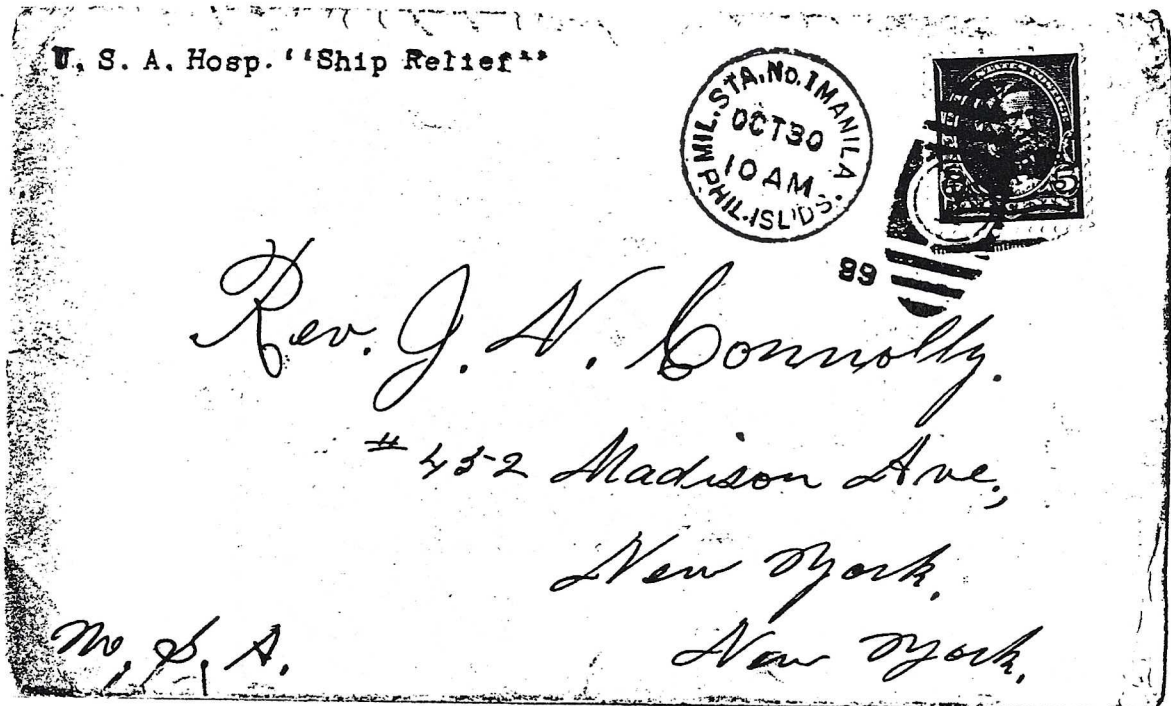 U. S. A. Hosp. ‘‘Ship Relief’’
MIL. STA. No. 1 MANILA.
OCT 30
10 AM
PHIL. ISL'DS.
5
99
Rev. J. N. Connolly.
# 452 Madison Ave.,
New York.
New York.
U. S. A.